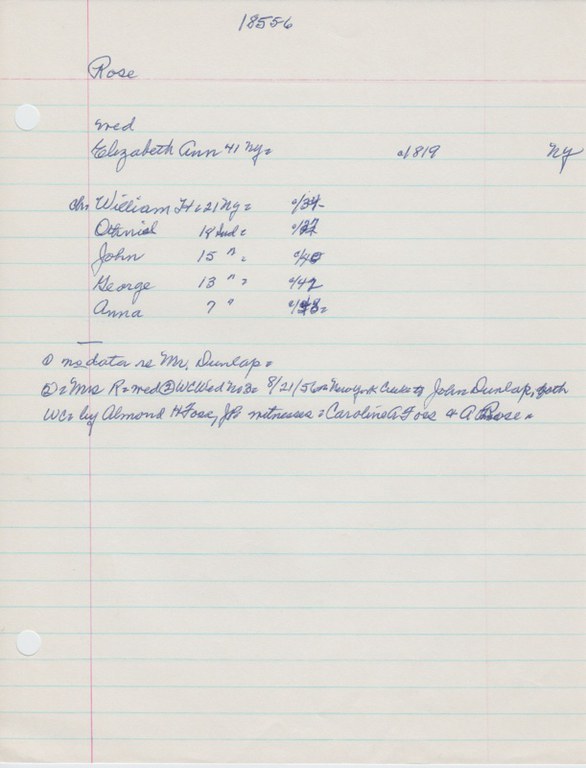 18556
Rose
wed
Elizabeth Ann 41 Ny= a/1819 Ny
chn William H=21 Ny= a/34
18 Ind= a/37
John 15 " = a/40
George 13 " = a/42
Anna 7 " a/48=
① no data re Mr. Dunlap=
②=Mrs R=wed② WCWed No3= 8/21/56= New York to John Dunlap, both
WC= by Almond H Foss, JP. witnesses = Caroline A Foss & A Rose=